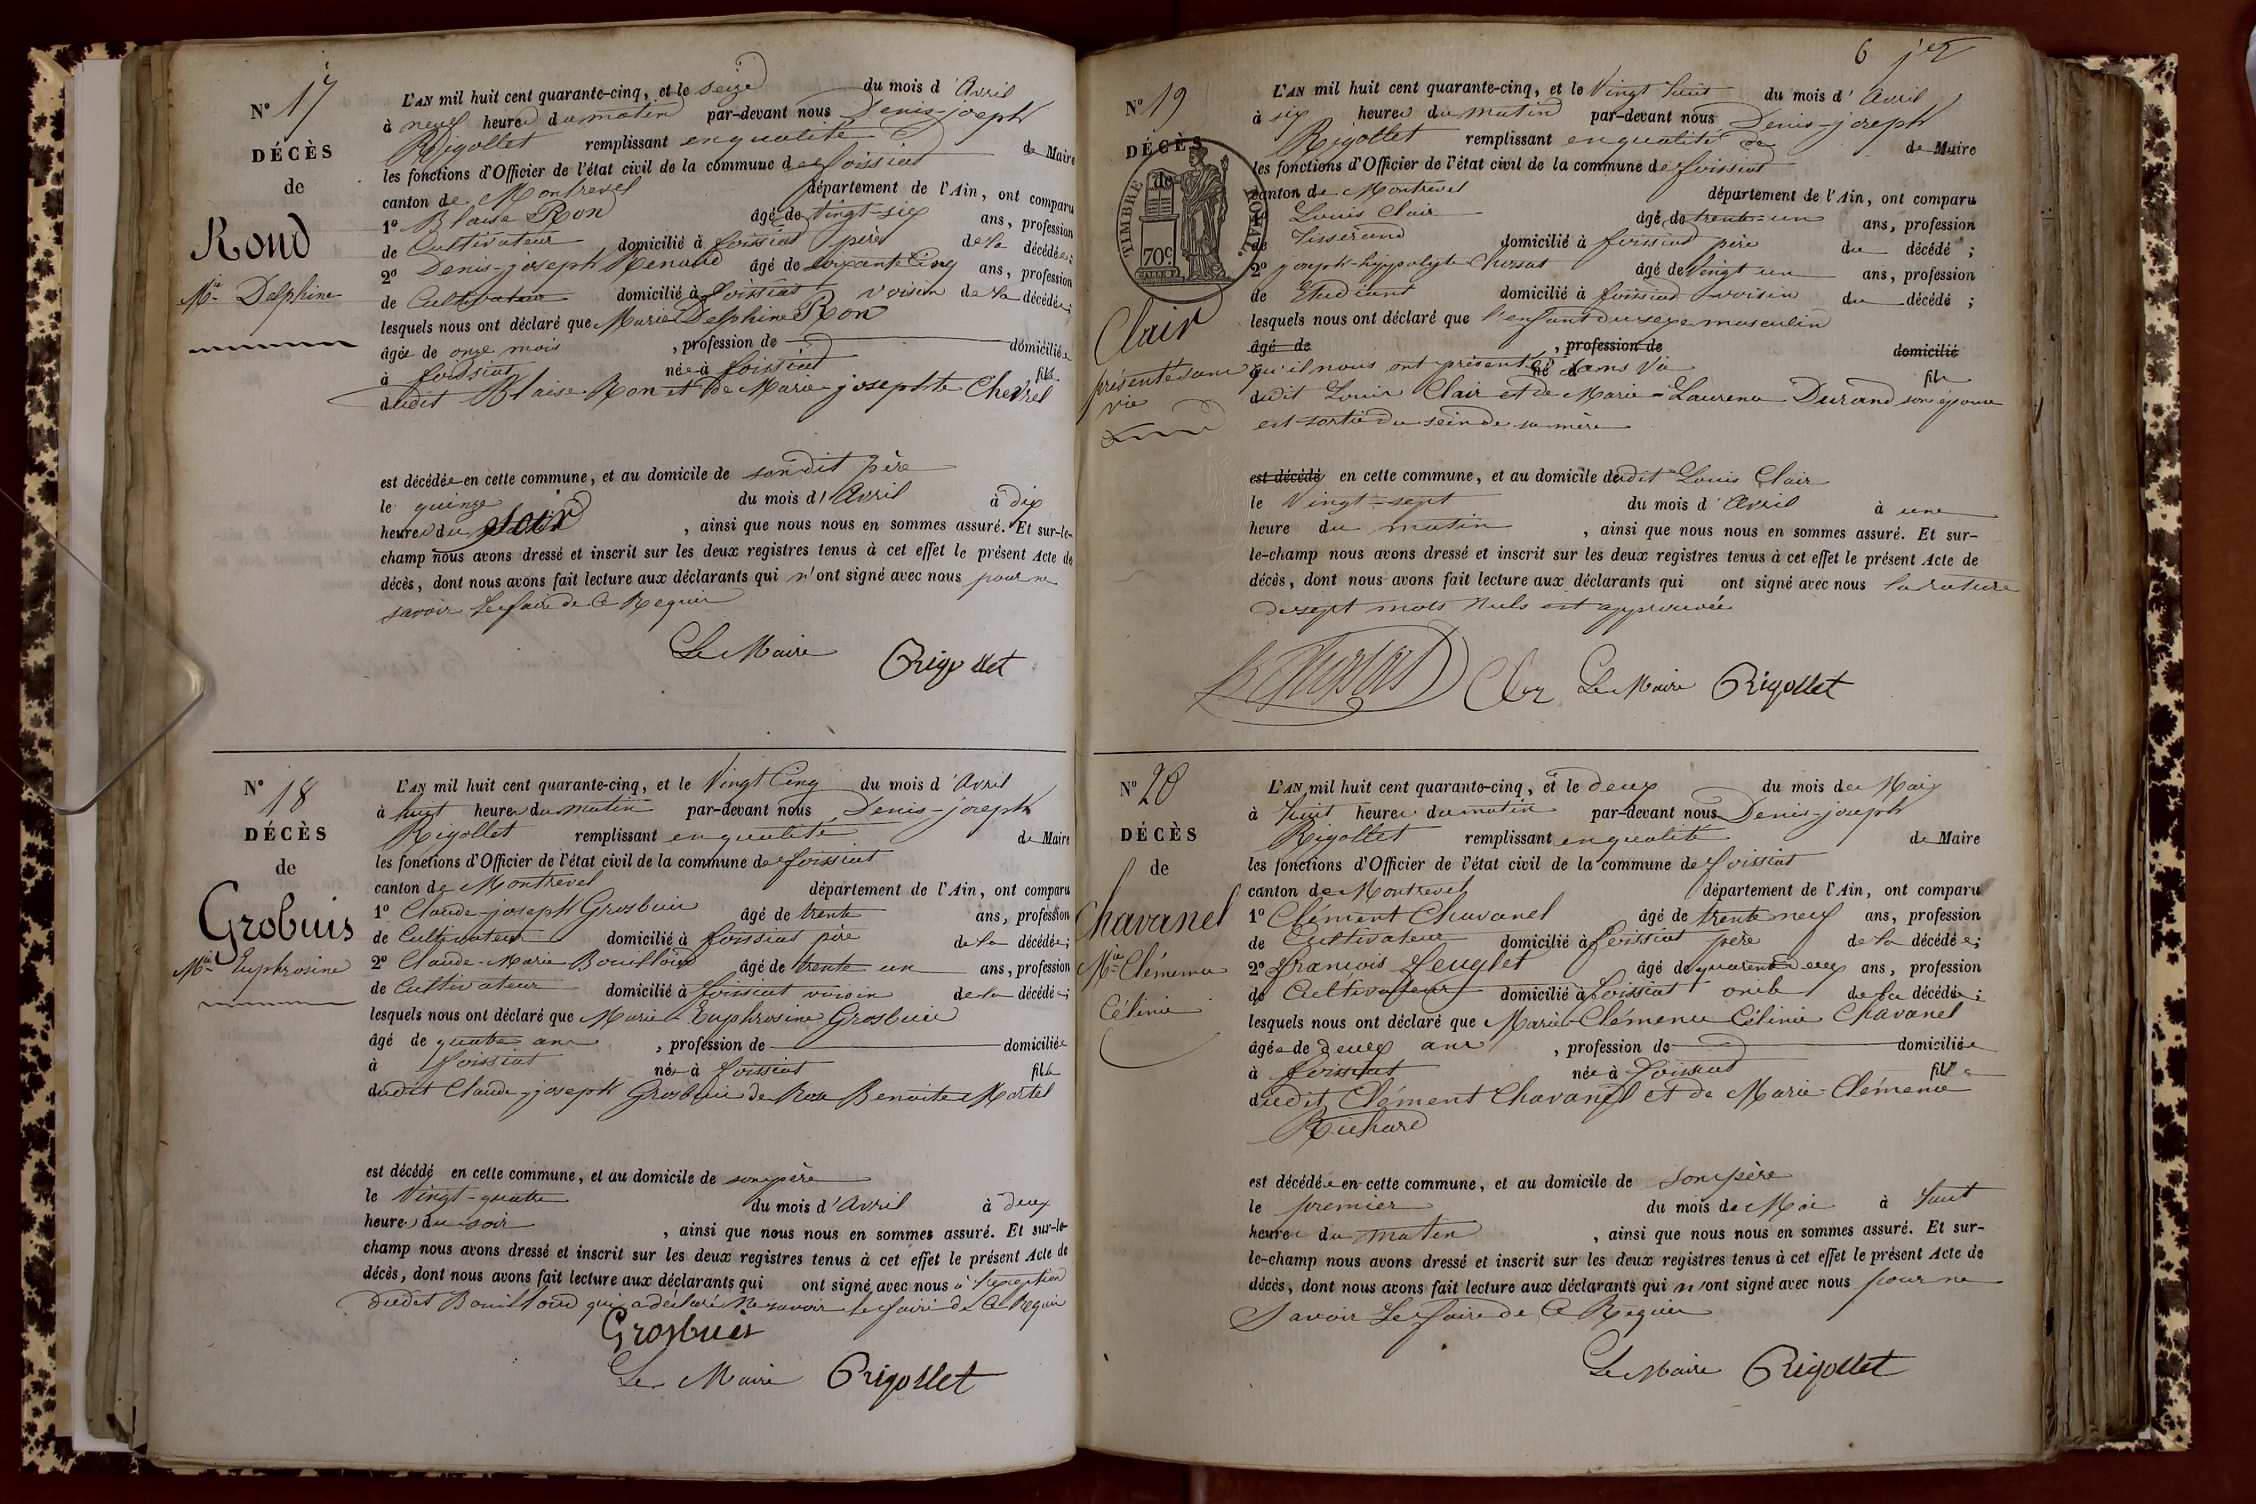 N° 17
DÉCÈS
de
Rond
Mie Delphine
L'AN mil huit cent quarante-cinq, et le seize du mois d'Avril
à neuf heures du matin par-devant nous Denis-joseph
Rigollet remplissant en qualité de Maire
les fonctions d'Officier de l'état civil de la commune de foissiat
canton de Montrevel département de l'Ain, ont comparu
1° Blaise Ron âgé de vingt-six ans, profession
de Cultivateur domicilié à foissiat père de la décédée;
2° Denis-joseph Renaud âgé de soixante Cinq ans, profession
de Cultivateur domicilié à foissiat voisin de la décédée;
lesquels nous ont déclaré que Marie Delphine Ron
âgée de onze mois, profession de domiciliée
à foissiat née à foissiat fille
dudit Blaise Ron et de Marie-josephte Chevrel
est décédée en cette commune, et au domicile de son dit père
le quinze du mois d'Avril à dix
heures du soir, ainsi que nous nous en sommes assuré. Et sur-le-
champ nous avons dressé et inscrit sur les deux registres tenus à cet effet le présent Acte de
décès, dont nous avons fait lecture aux déclarants qui n'ont signé avec nous pour ne
savoir le faire de ce Requis
Le Maire Rigollet
N° 18
DÉCÈS
de
Grobuis
Mie Euphrosine
L'AN mil huit cent quarante-cinq, et le Vingt Cinq du mois d'Avril
à huit heures du matin par-devant nous Denis-joseph
Rigollet remplissant en qualité de Maire
les fonctions d'Officier de l'état civil de la commune de foissiat
canton de Montrevel département de l'Ain, ont comparu
1° Claude-joseph Grosbuis âgé de trente ans, profession
de Cultivateur domicilié à foissiat père de la décédée;
2° Claude-Marie Bouilloud âgé de trente un ans, profession
de Cultivateur domicilié à foissiat voisin de la décédée;
lesquels nous ont déclaré que Marie-Euphrosine Grosbuis
âgé de quatre ans, profession de domiciliée
à foissiat née à foissiat fille
dudit Claude-joseph Grosbuis de Rose Benoite Martel
est décédé en cette commune, et au domicile de son père
le Vingt-quatre du mois d'Avril à deux
heures du soir, ainsi que nous nous en sommes assuré. Et sur-le-
champ nous avons dressé et inscrit sur les deux registres tenus à cet effet le présent Acte de
décès, dont nous avons fait lecture aux déclarants qui ont signé avec nous à l'exception
dudit Bouilloud qui a déclaré ne savoir le faire de ce Requis
Grosbuis
Le Maire Rigollet
6
N° 19
DÉCÈS
de
TIMBRE ROYAL
70c
Clair
présenté sans
vie
L'AN mil huit cent quarante-cinq, et le Vingt huit du mois d'Avril
à six heures du matin par-devant nous Denis-joseph
Rigollet remplissant en qualité de de Maire
les fonctions d'Officier de l'état civil de la commune de foissiat
canton de Montrevel département de l'Ain, ont comparu
1° Louis Clair âgé de trente-un ans, profession
de Tisserand domicilié à foissiat père du décédé;
2° joseph-hyppolyte Chossat âgé de Vingt un ans, profession
de Etudiant domicilié à foissiat voisin du décédé;
lesquels nous ont déclaré que l'enfant du sexe masculin
âgé de, profession de domicilié
qu'il nous ont présenté né à sans vie fils
dudit Louis Clair et de Marie-Laurence Durand son épouse
est sorti du sein de sa mère
est décédé en cette commune, et au domicile dudit Louis Clair
le Vingt-sept du mois d'Avril à une
heure du matin, ainsi que nous nous en sommes assuré. Et sur-
le-champ nous avons dressé et inscrit sur les deux registres tenus à cet effet le présent Acte de
décès, dont nous avons fait lecture aux déclarants qui ont signé avec nous la rature
de sept mots nuls est approuvée
Chossat Cler Le Maire Rigollet
N° 20
DÉCÈS
de
Chavanel
Mie Clémence
Célinie
L'AN mil huit cent quarante-cinq, et le deux du mois de Mai
à huit heures du matin par-devant nous Denis-joseph
Rigollet remplissant en qualité de Maire
les fonctions d'Officier de l'état civil de la commune de foissiat
canton de Montrevel département de l'Ain, ont comparu
1° Clément Chavanel âgé de trente neuf ans, profession
de Cultivateur domicilié à foissiat père de la décédée;
2° francois feuglet âgé de quarent deux ans, profession
de Cultivateur domicilié à foissiat oncle de la décédée;
lesquels nous ont déclaré que Marie-Clémence Célinie Chavanel
âgée de deux ans, profession de domiciliée
à foissiat née à foissiat fille
dudit Clément Chavanel et de Marie-Clémence
Richard
est décédée en cette commune, et au domicile de son père
le premier du mois de Mai à huit
heures du matin, ainsi que nous nous en sommes assuré. Et sur-
le-champ nous avons dressé et inscrit sur les deux registres tenus à cet effet le présent Acte de
décès, dont nous avons fait lecture aux déclarants qui n'ont signé avec nous pour ne
savoir le faire de ce Requis
Le Maire Rigollet